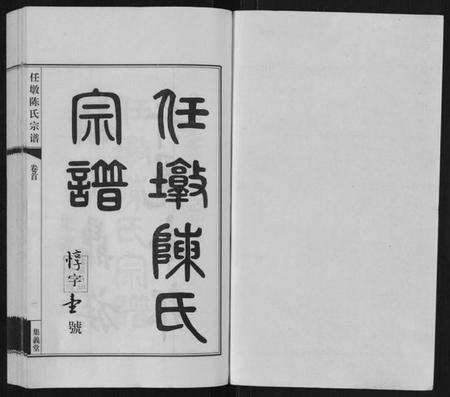 任墩陳氏
宗譜
惇字 壹 號
任墩陈氏宗谱
卷首
集義堂